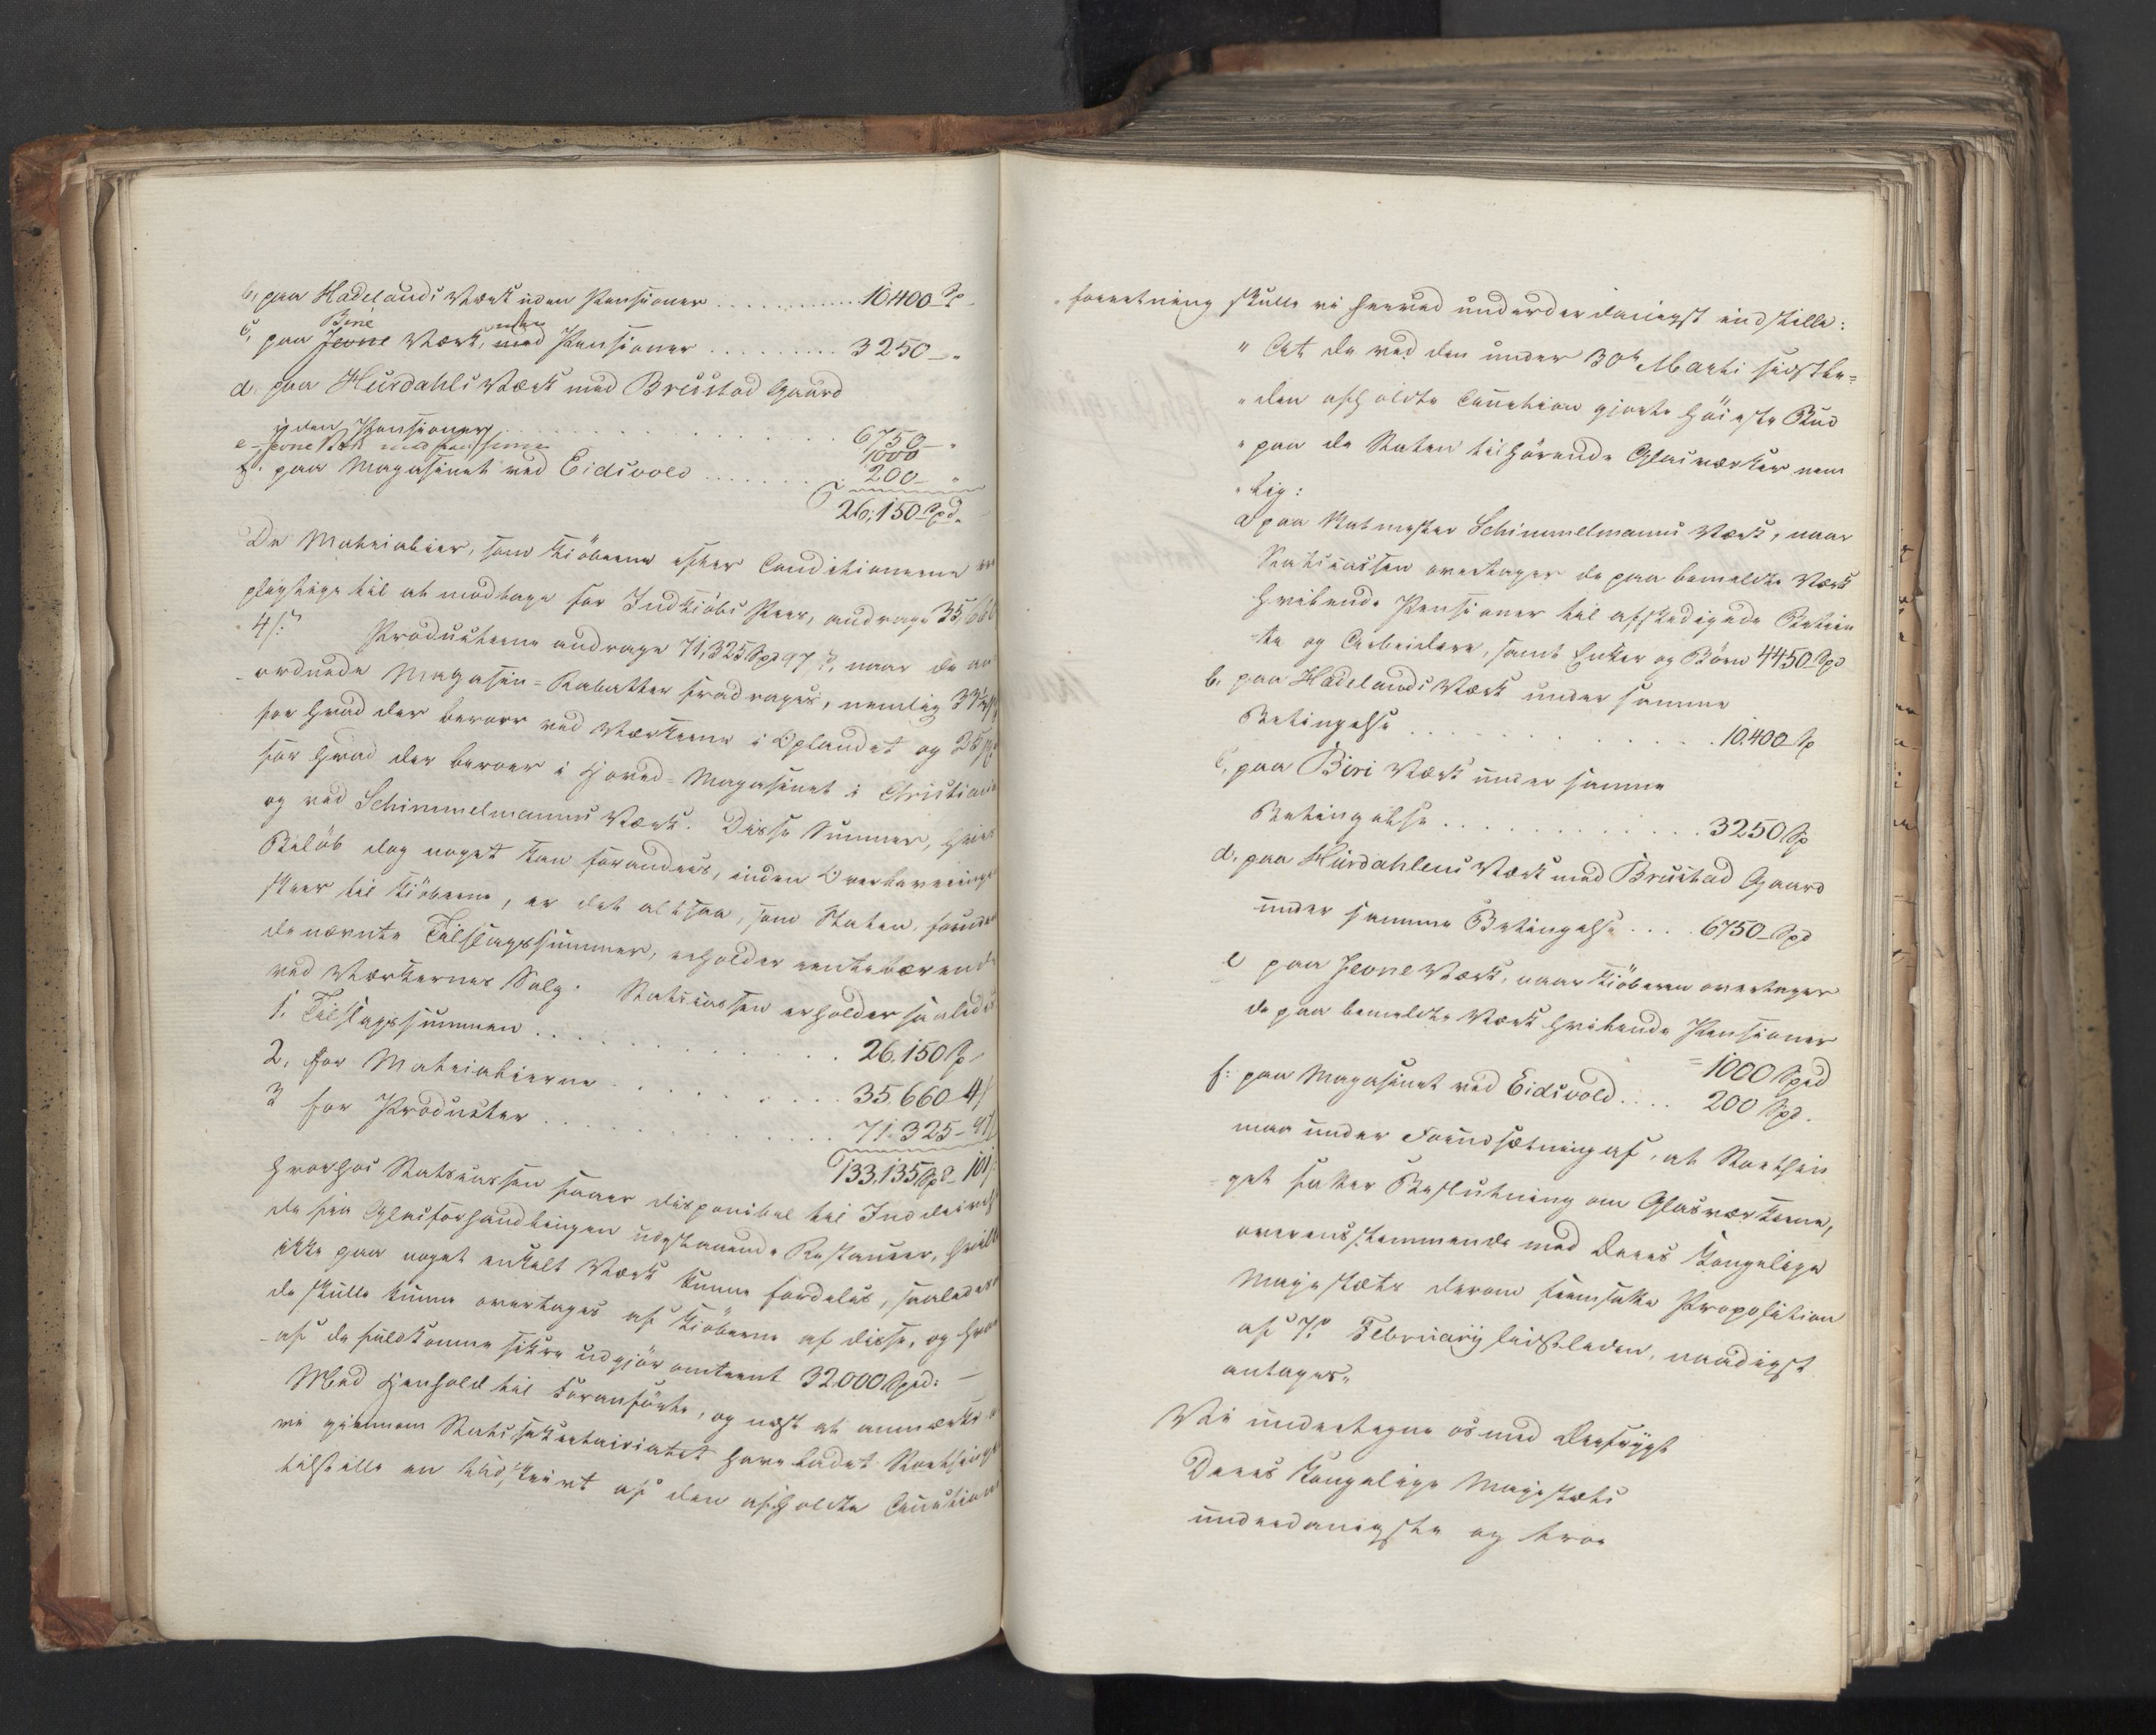 b, paa Hadelands Værk uden Pensioner . . . . . . . . . . . 10,400 Sp
Biri uden
c, paa Jevne Værk, med Pensioner . . . . . . . . . 3250 — "
d. paa Hurdahls Værk med Brustad Gaard
uden Pensioner . . . . . . . . . . . . 6750 — "
e – Jevne Værk med Pensioner 1000
f. paa Magasinet ved Eidsvold . . . . . . . . 200 — "
26,150 Spd.
De Materialier, som Kiöberne efter Conditionerne ere
pligtige til at modtage for Indkiöbs Priis, andrage 35,660
4 ß. Producterne andrage 71,325 Spd 97 ß, naar de an
ordnede Magasin-Rabatter fradrages, nemlig 33 1/3
for hvad der beroer ved Værkerne i Oplandet og 25 p
for hvad der beroer i Hoved-Magasinet i Christiania
og ved Schimmelmanns Værk. Disse Summer, hvis
Belöb dog noget kan forandres, inden Overleveringen
skeer til Kiöberne, er det altsaa, som Staten, foruden
de nævnte Tilslagssummer, erholder rentebærende
ved Værkernes Salg. Statscassen erholder saaledes
1. Tilslagssummen . . . . . . . . . . 26,150 Sp
2, for Materialierne . . . . . . . . . 35,660 4 ß
3 for Producter . . . . . . . . . . . . 71,325 – 97
133,135 Spd 101
hvorhos Statscassen faaer disponibel til Inddrivelse
de fra Glasforhandlingen udstaaende Restancer, hvilke
ikke paa noget enkelt Værk kunne fordeles, saaledes at
de skulle kunne overtages af Kiöberne af disse, og hvor
-af de fuldkomne sikre udgjör omtrent 32000 Spd: —
Med Henhold til Foranförte, og næst at anmærke at
vi giennem Statssekretairiatet have ladet Storthinget
tilstille en Udskrivt af den afholdte Auctions
-forretning skulle vi herved underdanigst indstille:
" At de ved den under 30te Marti sidstle-
" den afholdte Auction gjorte höieste Bud
" paa de Staten tilhörende Glasværker nem
" lig:
a paa Ratmester Schimmelmanns Værk, naar
Statscassen overtager de paa bemeldte Værk
hvilende Pensioner til afskedigede Betien
-te og Arbeidere, samt Enker og Börn 4450 Spd
b. paa Hadelands Værk under samme
Betingelse . . . . . . . . . . . . . 10,400 Sp
c, paa Biri Værk under samme
Betingelse . . . . . . . . . . . . 3250 Sp
d, paa Hurdahlens Værk med Brustad Gaard
under samme Betingelse . . . . 6750 – Spd
e paa Jevne Værk, naar Kiöberen overtager
de paa bemeldte Værk hvilende Pensioner
= 1000 Spd
f: paa Magasinet ved Eidsvold . . . . 200 Spd.
maa under Forudsætning af, at Storthin
-get fatter Beslutning om Glasværkerne,
overensstemmende med Deres Kongelige
Majestæts derom fremsatte Proposition
af 7de February sidstleden, naadigst
antages"
Vi undertegne os med Dyefrygt
Deres Kongelige Majestæts
underdanigste og troe